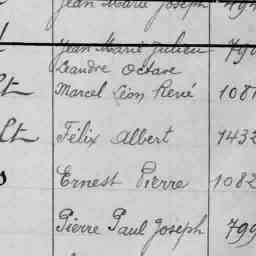 Jean Marie Joseph
Jean Marie Julien
Leandre Octave
lt Marcel Léon René 1081
lt Félix Albert 1432
Ernest Pierre 1082
Pierre Paul Joseph 799